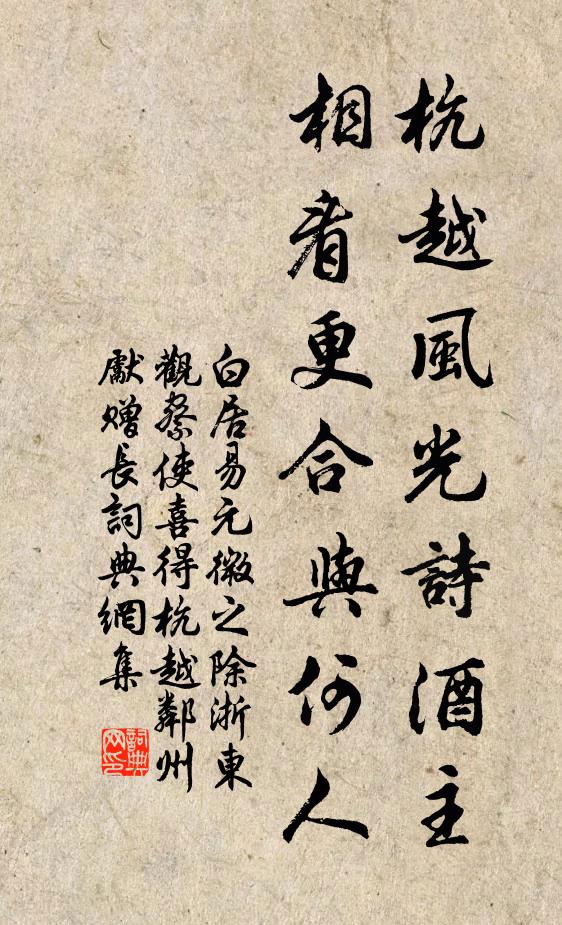 杭越風光詩酒主
相看更合與何人
白居易元微之除浙東
觀察使喜得杭越鄰州
獻贈長詞典網集
詞典網印